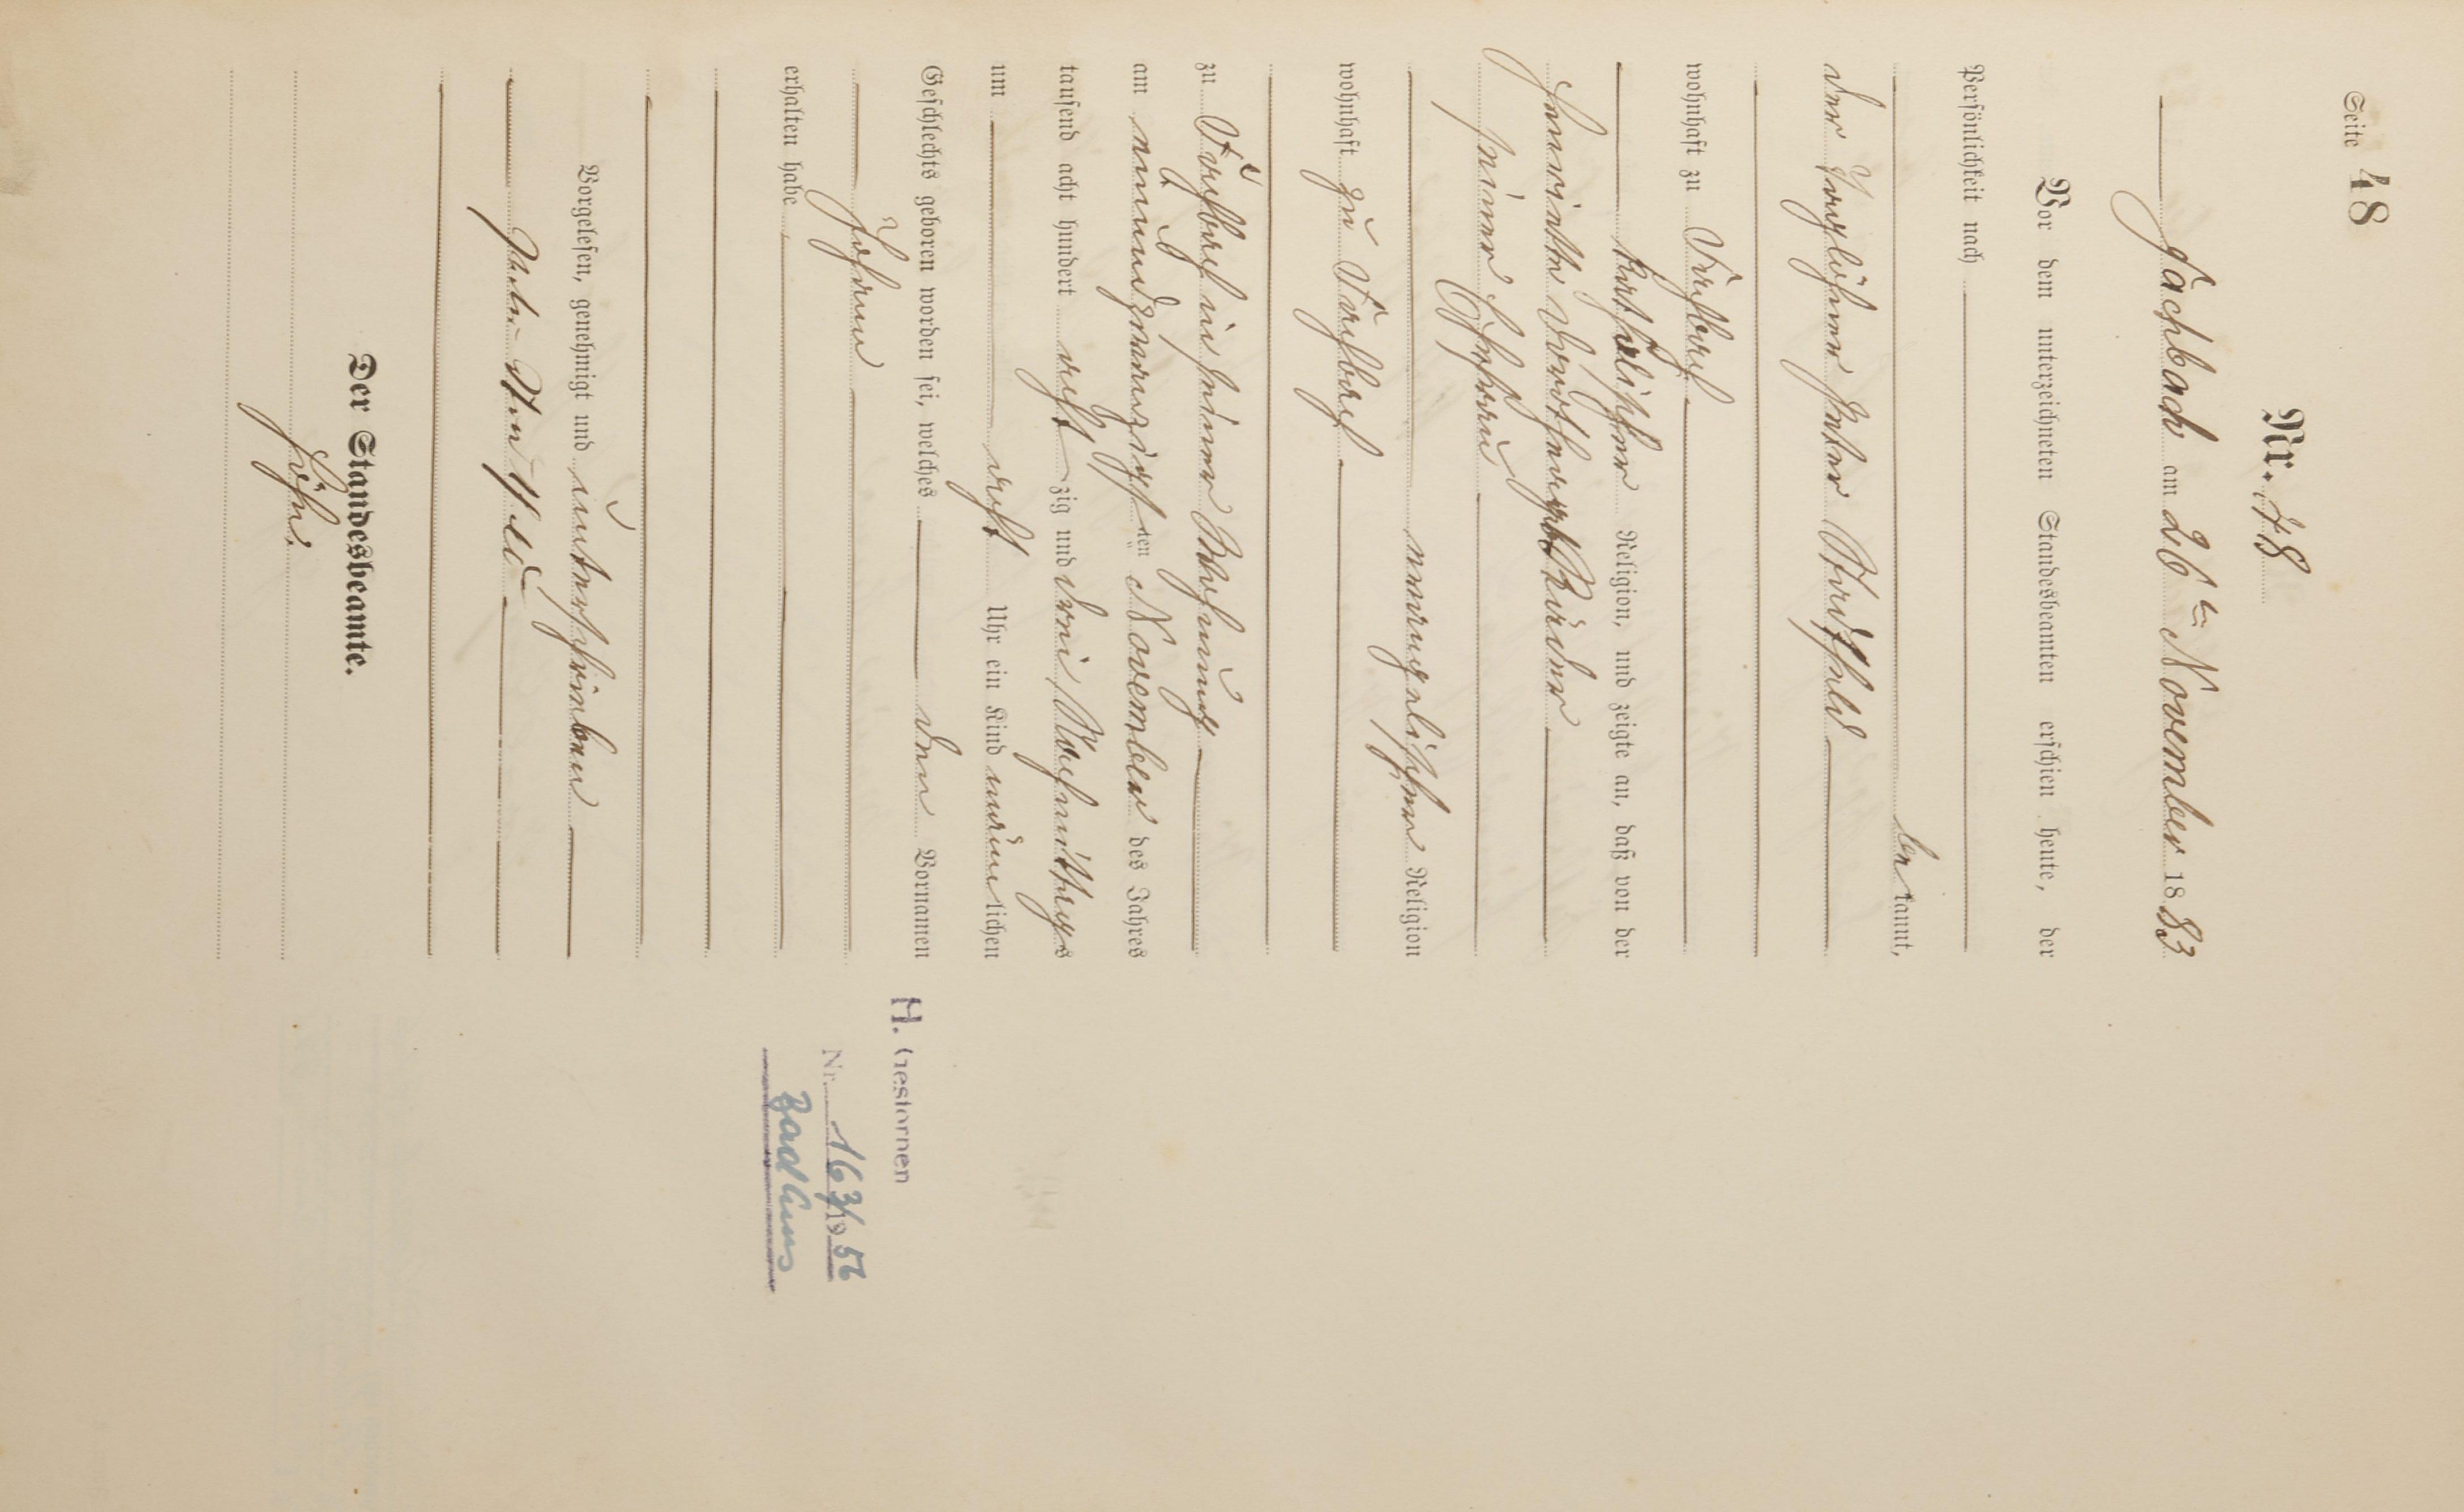 Seite 48
Nr. 48
Fachbach am 26ten November 1883
Vor dem unterzeichneten Standesbeamten erschien heute, der
Persönlichkeit nach
bekannt,
der Taglöhner Peter
wohnhaft zu Fachbach
katholischer Religion, und zeigte an, daß von der
Henriette Dorothea geb.
seiner Ehefrau
evangelischer Religion
wohnhaft zu Fachbach
zu Fachbach in seiner Wohnung
am einundzwanzigsten November des Jahres
tausend acht hundert achtzig und drei, Nachmittags
um acht Uhr ein Kind männlichen
Geschlechts geboren worden sei, welches den Vornamen
Johann
erhalten habe
Vorgelesen, genehmigt und unterschrieben
Peter
Der Standesbeamte.
H. Gestorben
Nr. 163/1956
Bad Ems